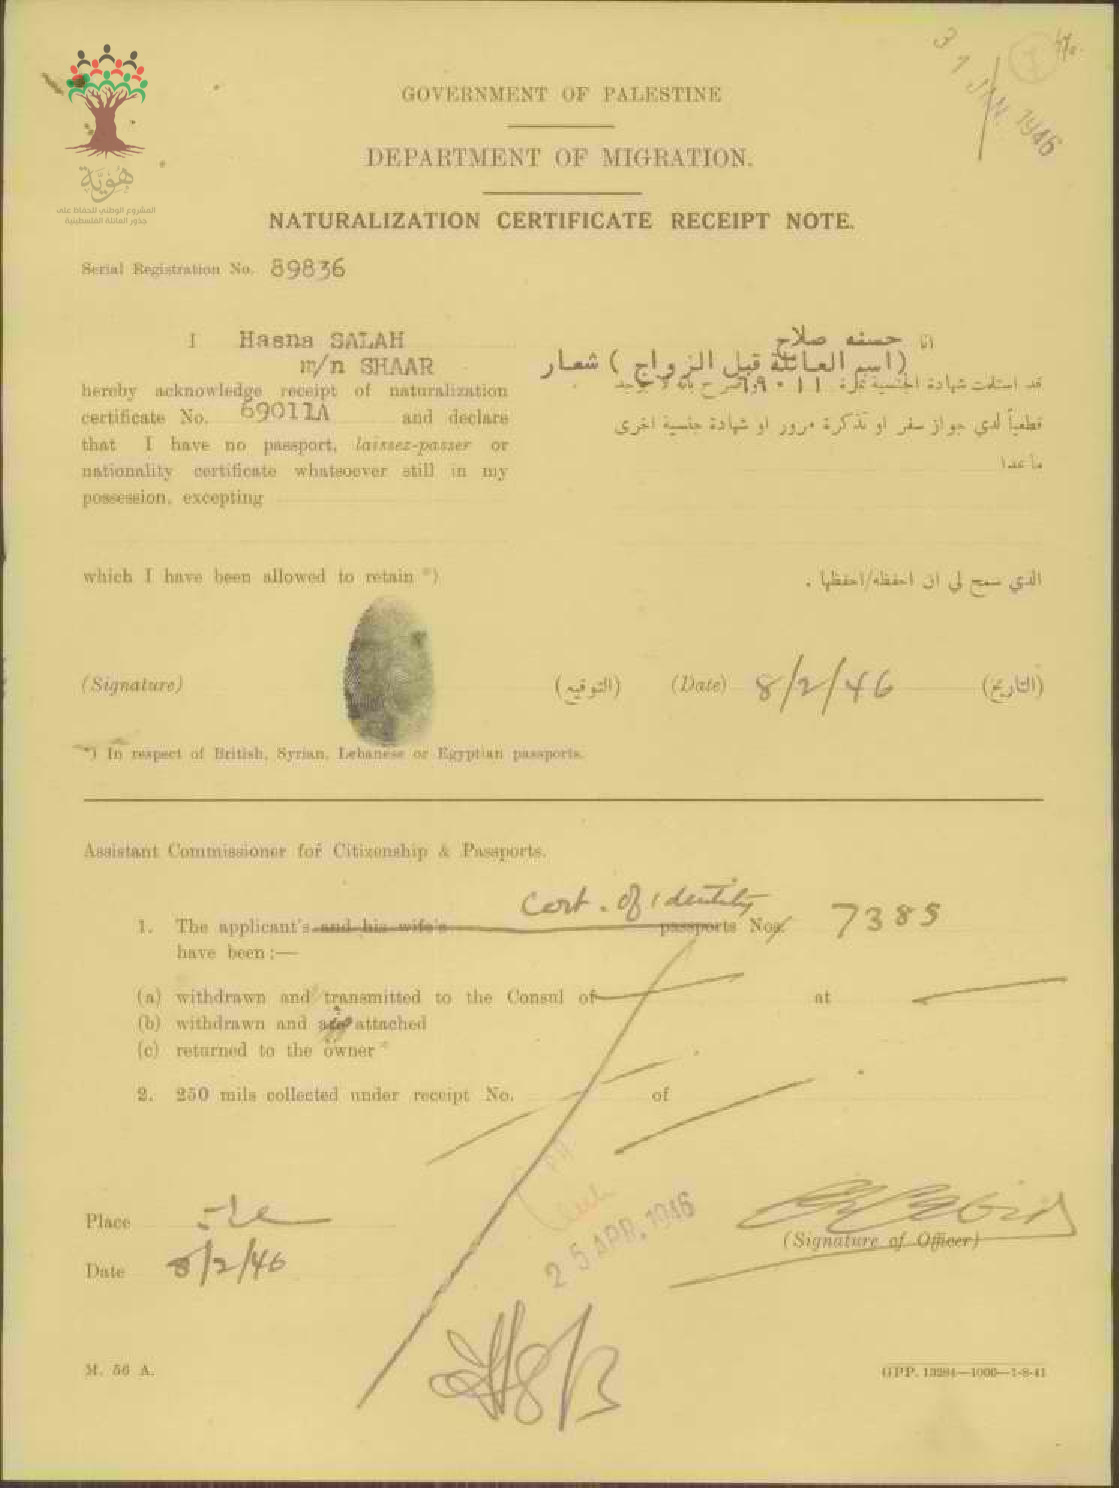 هوية
المشروع الوطني للحفاظ على
جذور العائلة الفلسطينية
31 JAN 1946
GOVERNMENT OF PALESTINE
DEPARTMENT OF MIGRATION.
NATURALIZATION CERTIFICATE RECEIPT NOTE.
Serial Registration No. 89836
I Hasna SALAH
m/n SHAAR
hereby acknowledge receipt of naturalization
certificate No. 69011A and declare
that I have no passport, laissez-passer or
nationality certificate whatsoever still in my
possession, excepting
انا حسنه صلاح
(اسم العائلة قبل الزواج ) شعار
قد استلمت شهادة الجنسية نمرة ٦٩٠١١
قطعياً لدي جواز سفر او تذكرة مرور او شهادة جنسية اخرى
ما عدا
which I have been allowed to retain *)
الذي سمح لي ان احفظه/احفظها .
(Signature) (التوقيع) (Date) 8/2/46 (التاريخ)
*) In respect of British, Syrian, Lebanese or Egyptian passports.
Assistant Commissioner for Citizenship & Passports.
Cert. of identity
1. The applicant's and his wife's passports Nos. 7385
have been :—
(a) withdrawn and transmitted to the Consul of at
(b) withdrawn and are attached
(c) returned to the owner *
2. 250 mils collected under receipt No. of
25 APR. 1946
Place
(Signature of Officer)
Date 8/2/46
M. 56 A.
GPP. 13284—1000—1-8-41